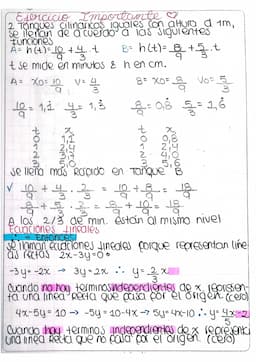 Ejercicio Importante ♡
2 Tanques cilíndricos iguales con altura d 1m,
se llenan de acuerdo a las siguientes
funciones
A= h(t)= 10/9 + 4/3 . t B= h(t)= 8/9 + 5/3 . t
t se mide en minutos & h en cm.
A= X0= 10/9 V= 4/3 B= X0= 8/9 V0= 5/3
10/9 = 1,1 4/3 = 1,3 8/9 = 0,8 5/3 = 1,6
t x t x
Se llena más rápido en Tanque B
✓ 10/9 + 4/3 . 2/3 = 10/9 + 8/9 = 18/9
8/9 + 5/3 . 2/3 = 8/9 + 10/9 = 18/9
A los 2/3 de min. están al mismo nivel
Ecuaciones lineales
∴ = Entonces
Se llaman ecuaciones lineales porque representan líne
as rectas 2x-3y=0
-3y = -2x → 3y = 2x ∴ y = 2/3 x
Cuando no hay terminos independientes de x represen-
ta una linea recta que pasa por el origen (cero)
4x-5y=10 → -5y=10-4x → 5y=4x-10 ∴ y= 4x/5 -2
Cuando hay terminos independientes de x representa
una linea recta que no pasa por el origen. (cero)